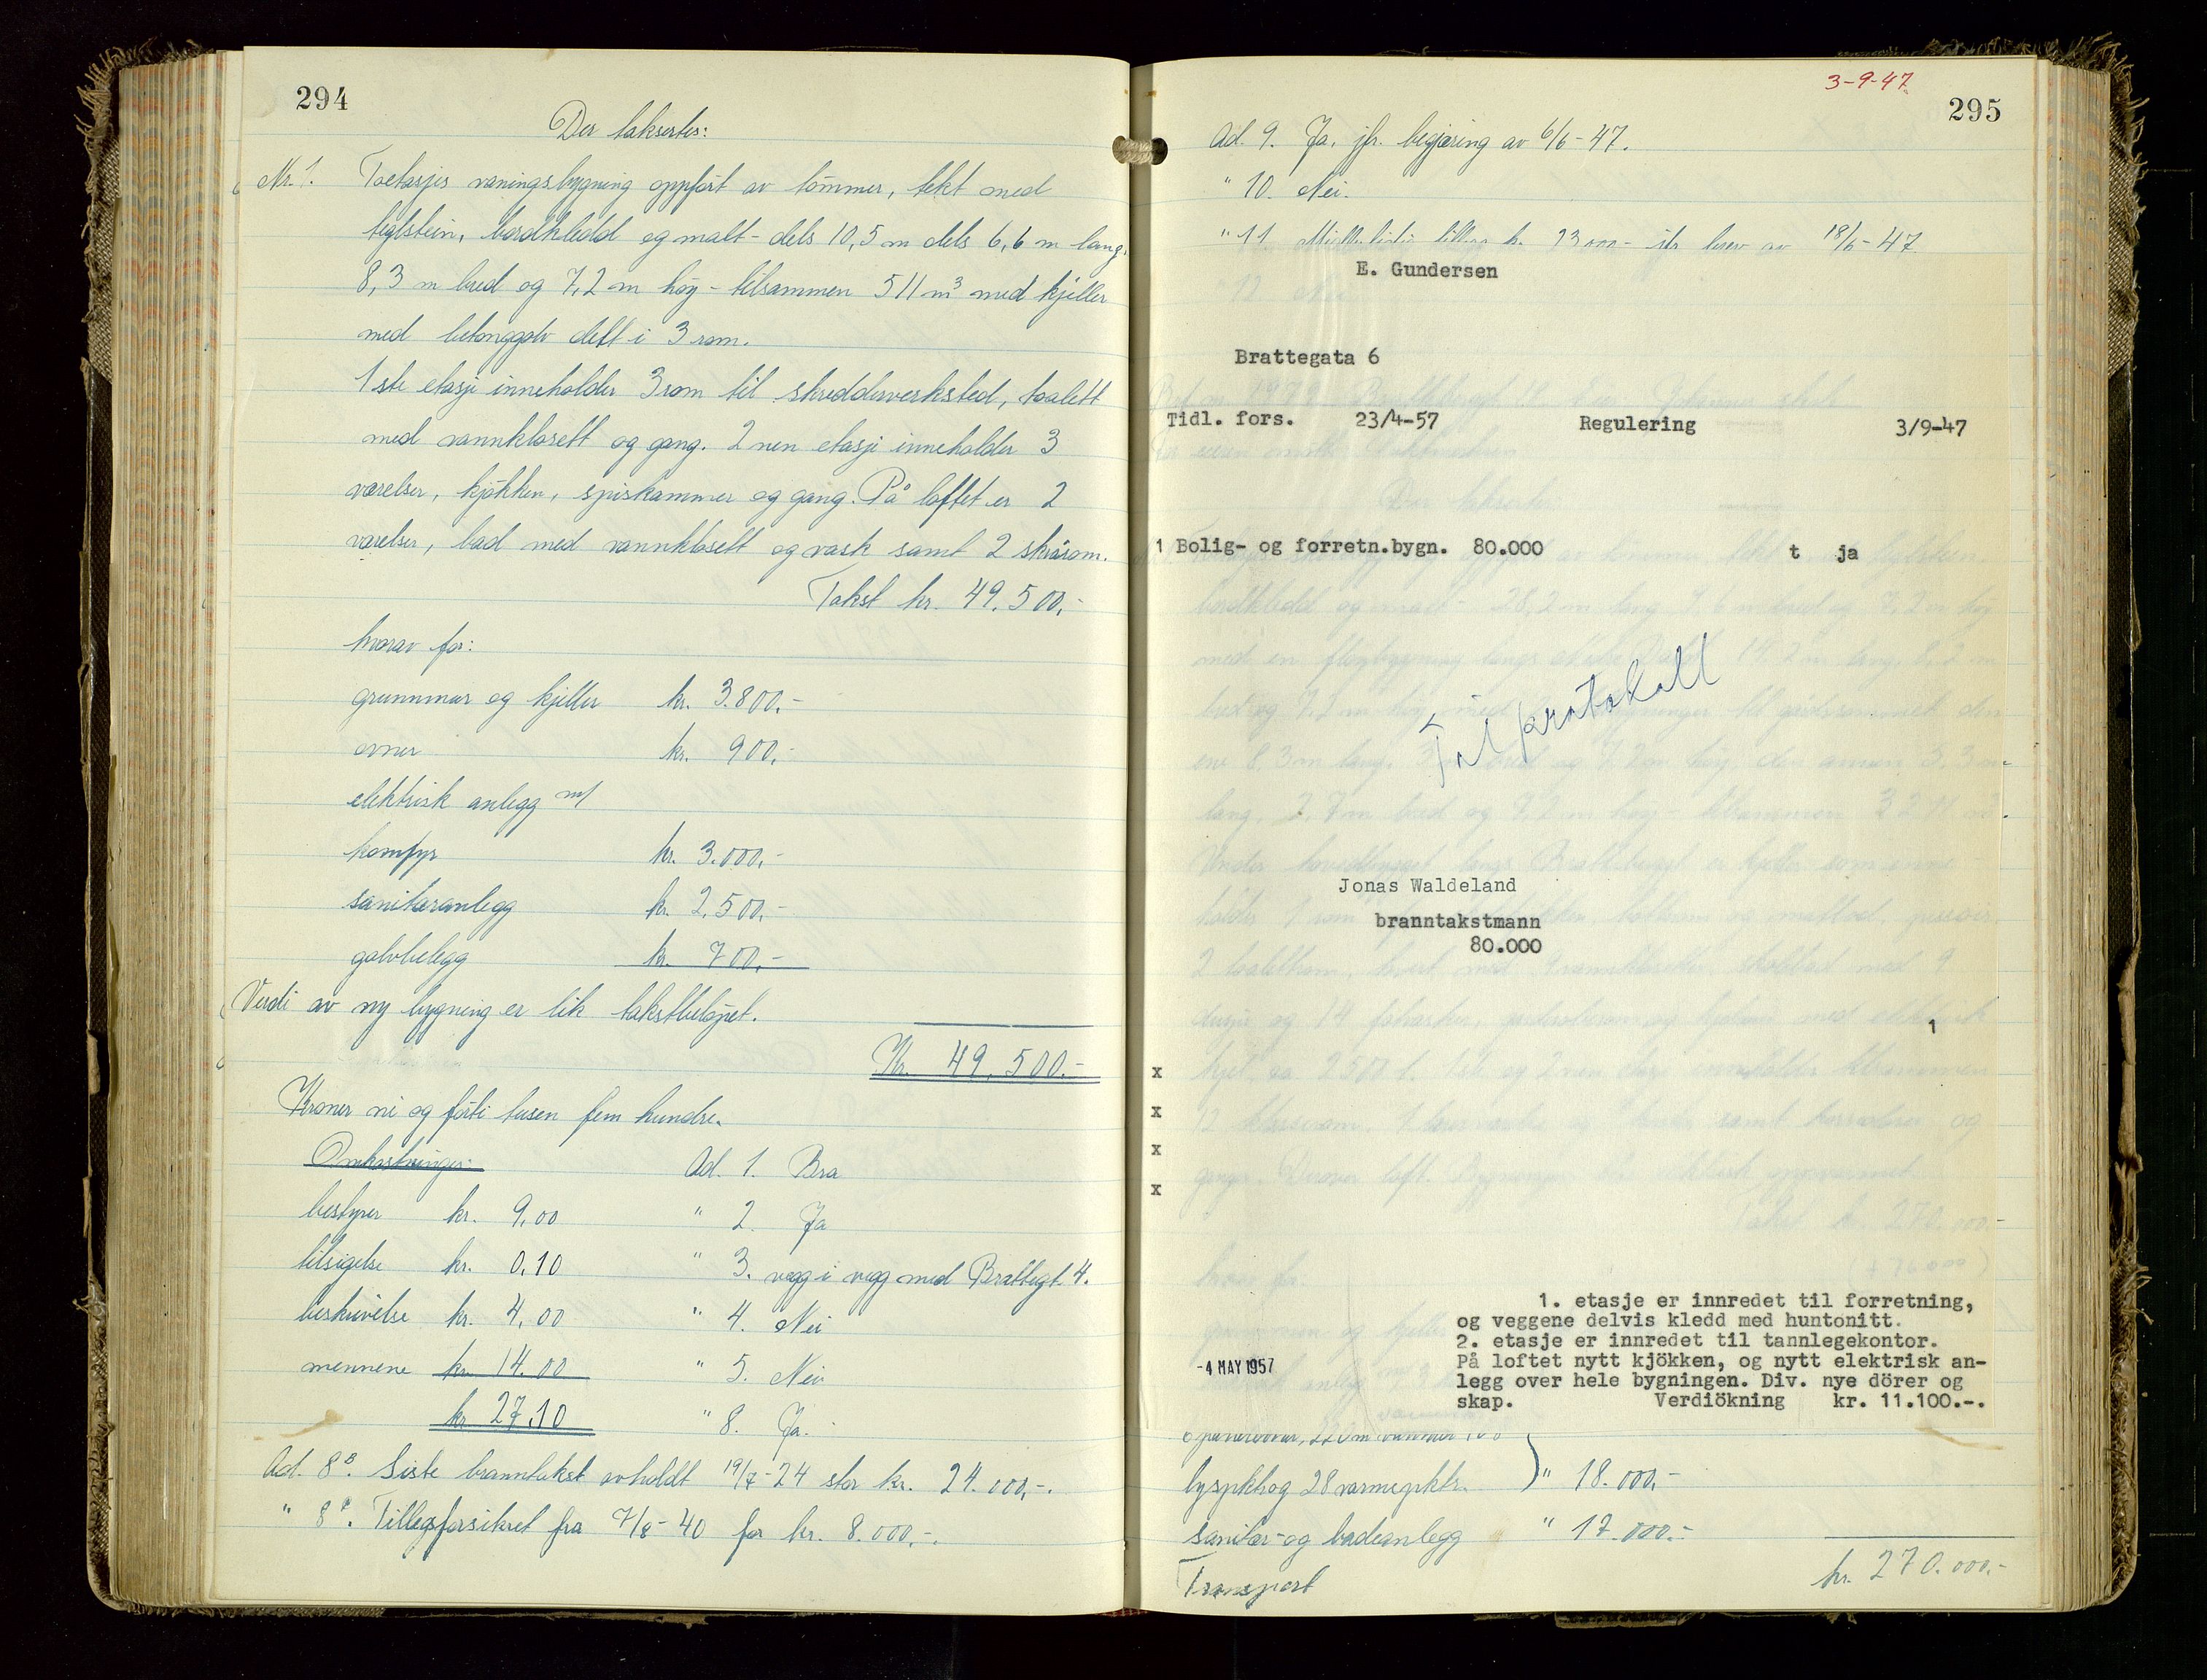 294
Der takseres:
Nr. 1. Toetasjes våningsbygning oppført av tømmer, tekt med
teglstein, bordkledd og malt - dels 10,5 m dels 6,6 m lang,
8,3 m bred og 7,2 m høy - tilsammen 511 m³ med kjeller
med betonggolv delt i 3 rom.
1ste etasje inneholder 3 rom til skredderverksted, toalett
med vannklosett og gang. 2nen etasje inneholder 3
værelser, kjøkken, spiskammer og gang. På loftet er 2
værelser, bad med vannklosett og vask samt 2 skrårom.
Takst kr. 49.500,-
hvorav for:
grunnmur og kjeller kr. 3.800,-
ovner kr. 900,-
elektrisk anlegg m/
komfyr kr. 3.000,-
sanitæranlegg kr. 2.500,-
golvbelegg kr. 700,-
Verdi av ny bygning er lik takstbeløpet.
Kr. 49.500.-
Kroner ni og førti tusen fem hundre.
Omkostninger: Ad. 1. Bra
bestyrer kr. 9,00 " 2. Ja
tilsigelse kr. 0.10 " 3. vegg i vegg med Brattegt. 4.
beskrivelse kr. 4,00 " 4. Nei
mennene kr. 14.00 " 5. Nei
kr. 27.10 " 8. Ja.
Ad. 8ᵇ. Siste branntakst avholdt 19/7-24 stor kr. 24.000,-.
" 8ᶜ. Tilleggsforsikret fra 7/8-40 for kr. 8.000,-.
3-9-47
295
Ad. 9. Ja, jfr. begjæring av 6/6-47.
" 10. Nei.
" 11. Midlertidig tillegg kr. 23.000.- jfr. brev av 18/6-47
E. Gundersen
Brattegata 6
Tidl. fors. 23/4-57 Regulering 3/9-47
1 Bolig- og forretn.bygn. 80.000 t ja
Til protokoll
Jonas Waldeland
branntakstmann
80.000
1
x
x
x
x
1. etasje er innredet til forretning,
og veggene delvis kledd med huntonitt.
2. etasje er innredet til tannlegekontor.
På loftet nytt kjökken, og nytt elektrisk an-
-4 MAY 1957
legg over hele bygningen. Div. nye dörer og
skap. Verdiökning kr. 11.100.-.
lyspkt. og 28 varmepktr. ) " 18.000,-
sanitær- og badeanlegg " 17.000.-
Transport kr. 270.000.-